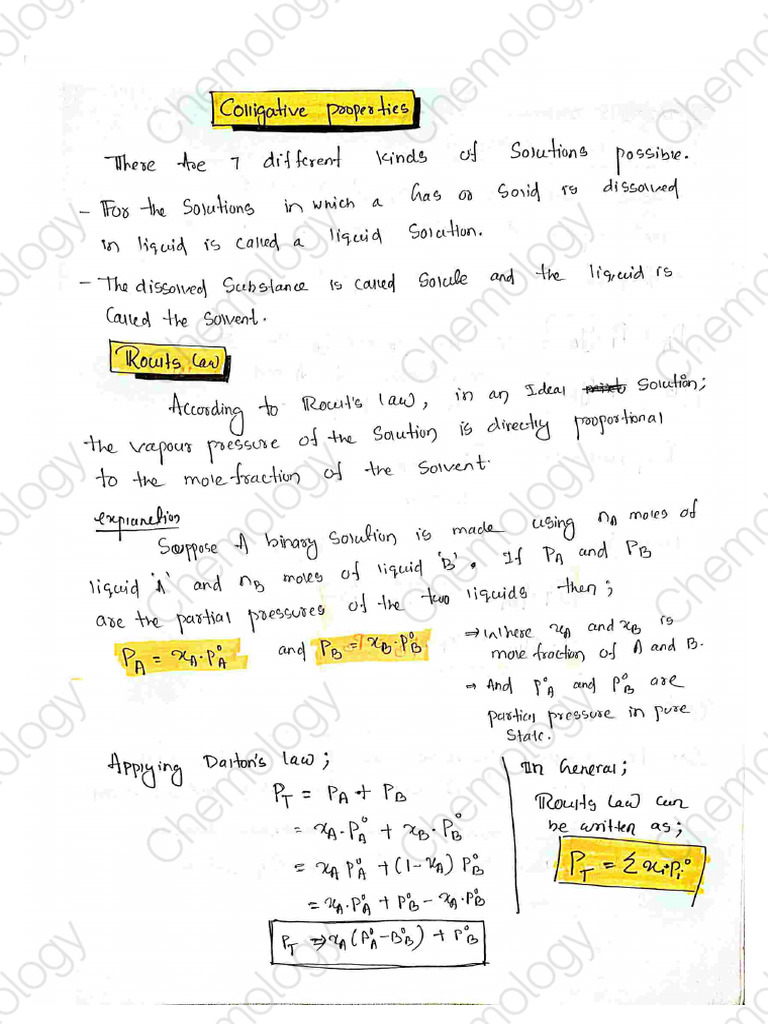 Colligative properties
There Are 7 different kinds of Solutions possible.
- For the Solutions in which a Gas or Solid is dissolved
in liquid is called a liquid Solution.
- The dissolved Substance is called Solute and the liquid is
Called the Solvent.
Roults Law
According to Roult's Law, in an Ideal Solution;
the vapour pressure of the Solution is directly proportional
to the mole fraction of the Solvent.
explanation
Suppose A binary Solution is made using nA moles of
liquid 'A' and nB moles of liquid 'B'. If PA and PB
are the partial pressures of the two liquids then;
PA = xA.P°A and PB = xB.P°B
⇒ Where xA and xB is
mole fraction of A and B.
→ And P°A and P°B are
partial pressure in pure
State.
Applying Dalton's law;
PT = PA + PB
= xA.P°A + xB.P°B
= xA P°A + (1-xA) P°B
= xA.P°A + P°B - xA.P°B
PT ⇒ xA (P°A - B°B) + P°B
In General;
Roults Law can
be written as;
PT = Σxi.Pi°
Chemology